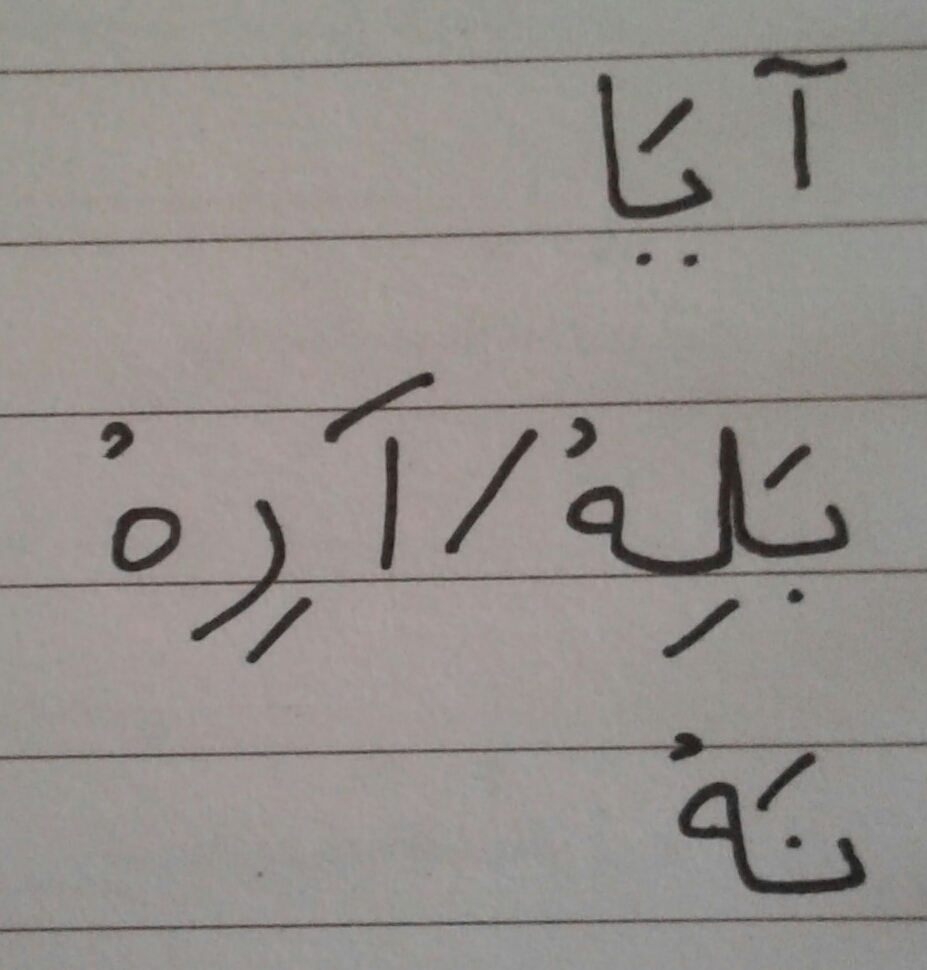 آیَا
بَلِهْ/اَرِهْ
نَهْ